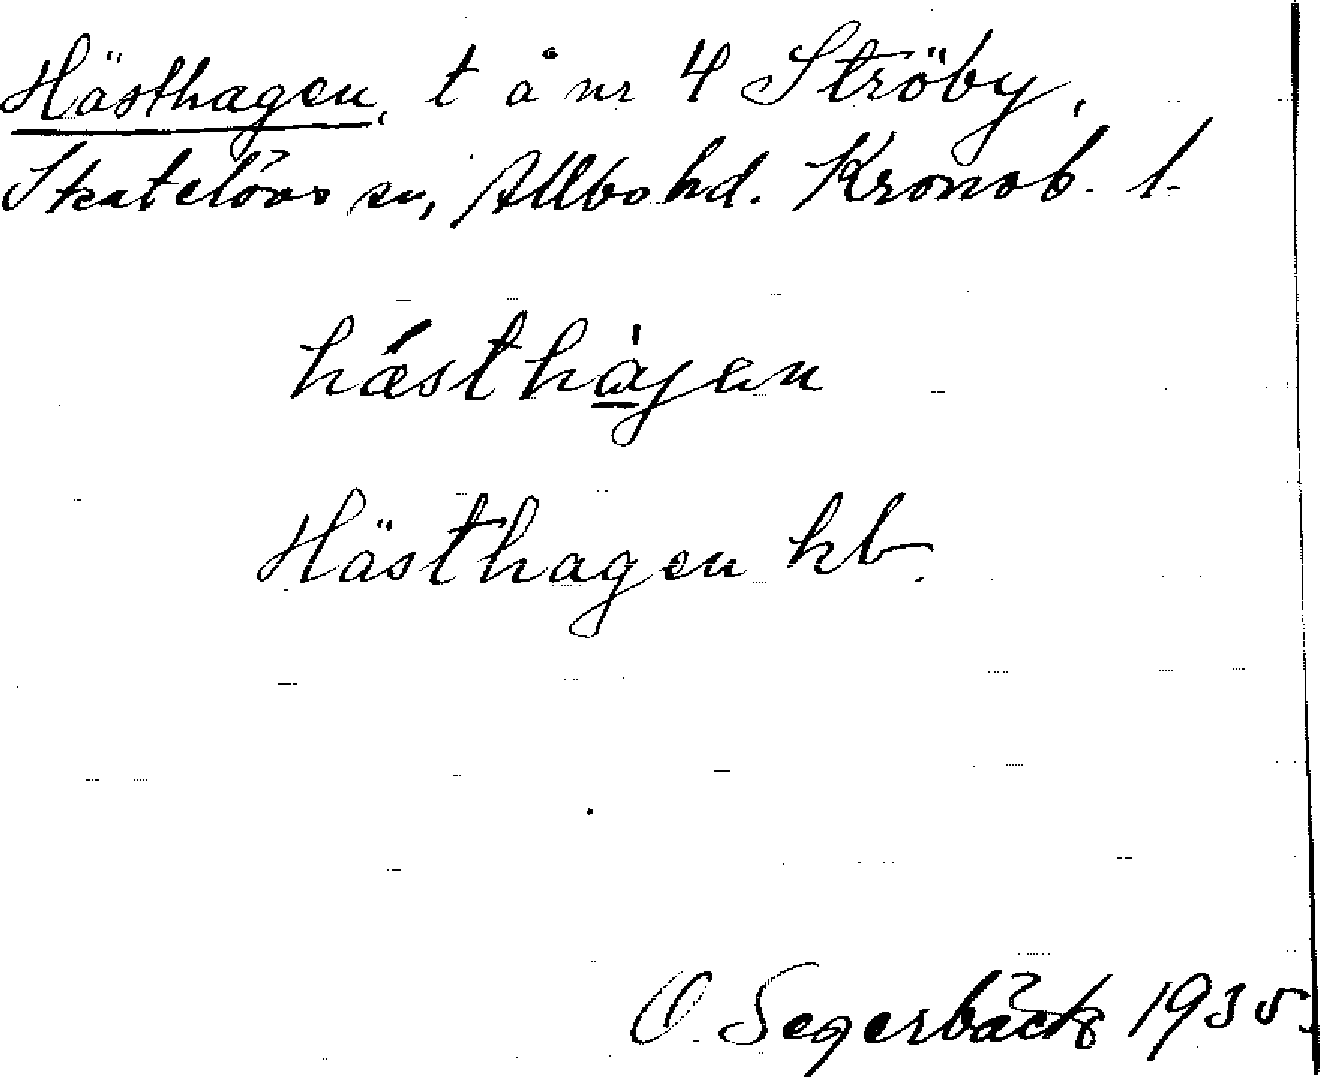 Hästhagen, t å nr 4 Ströby,
Skatelövs sn, Allbo hd. Kronob. l.
hǽsthàgen
Hästhagen kb.
O. Segerbäck 1935.